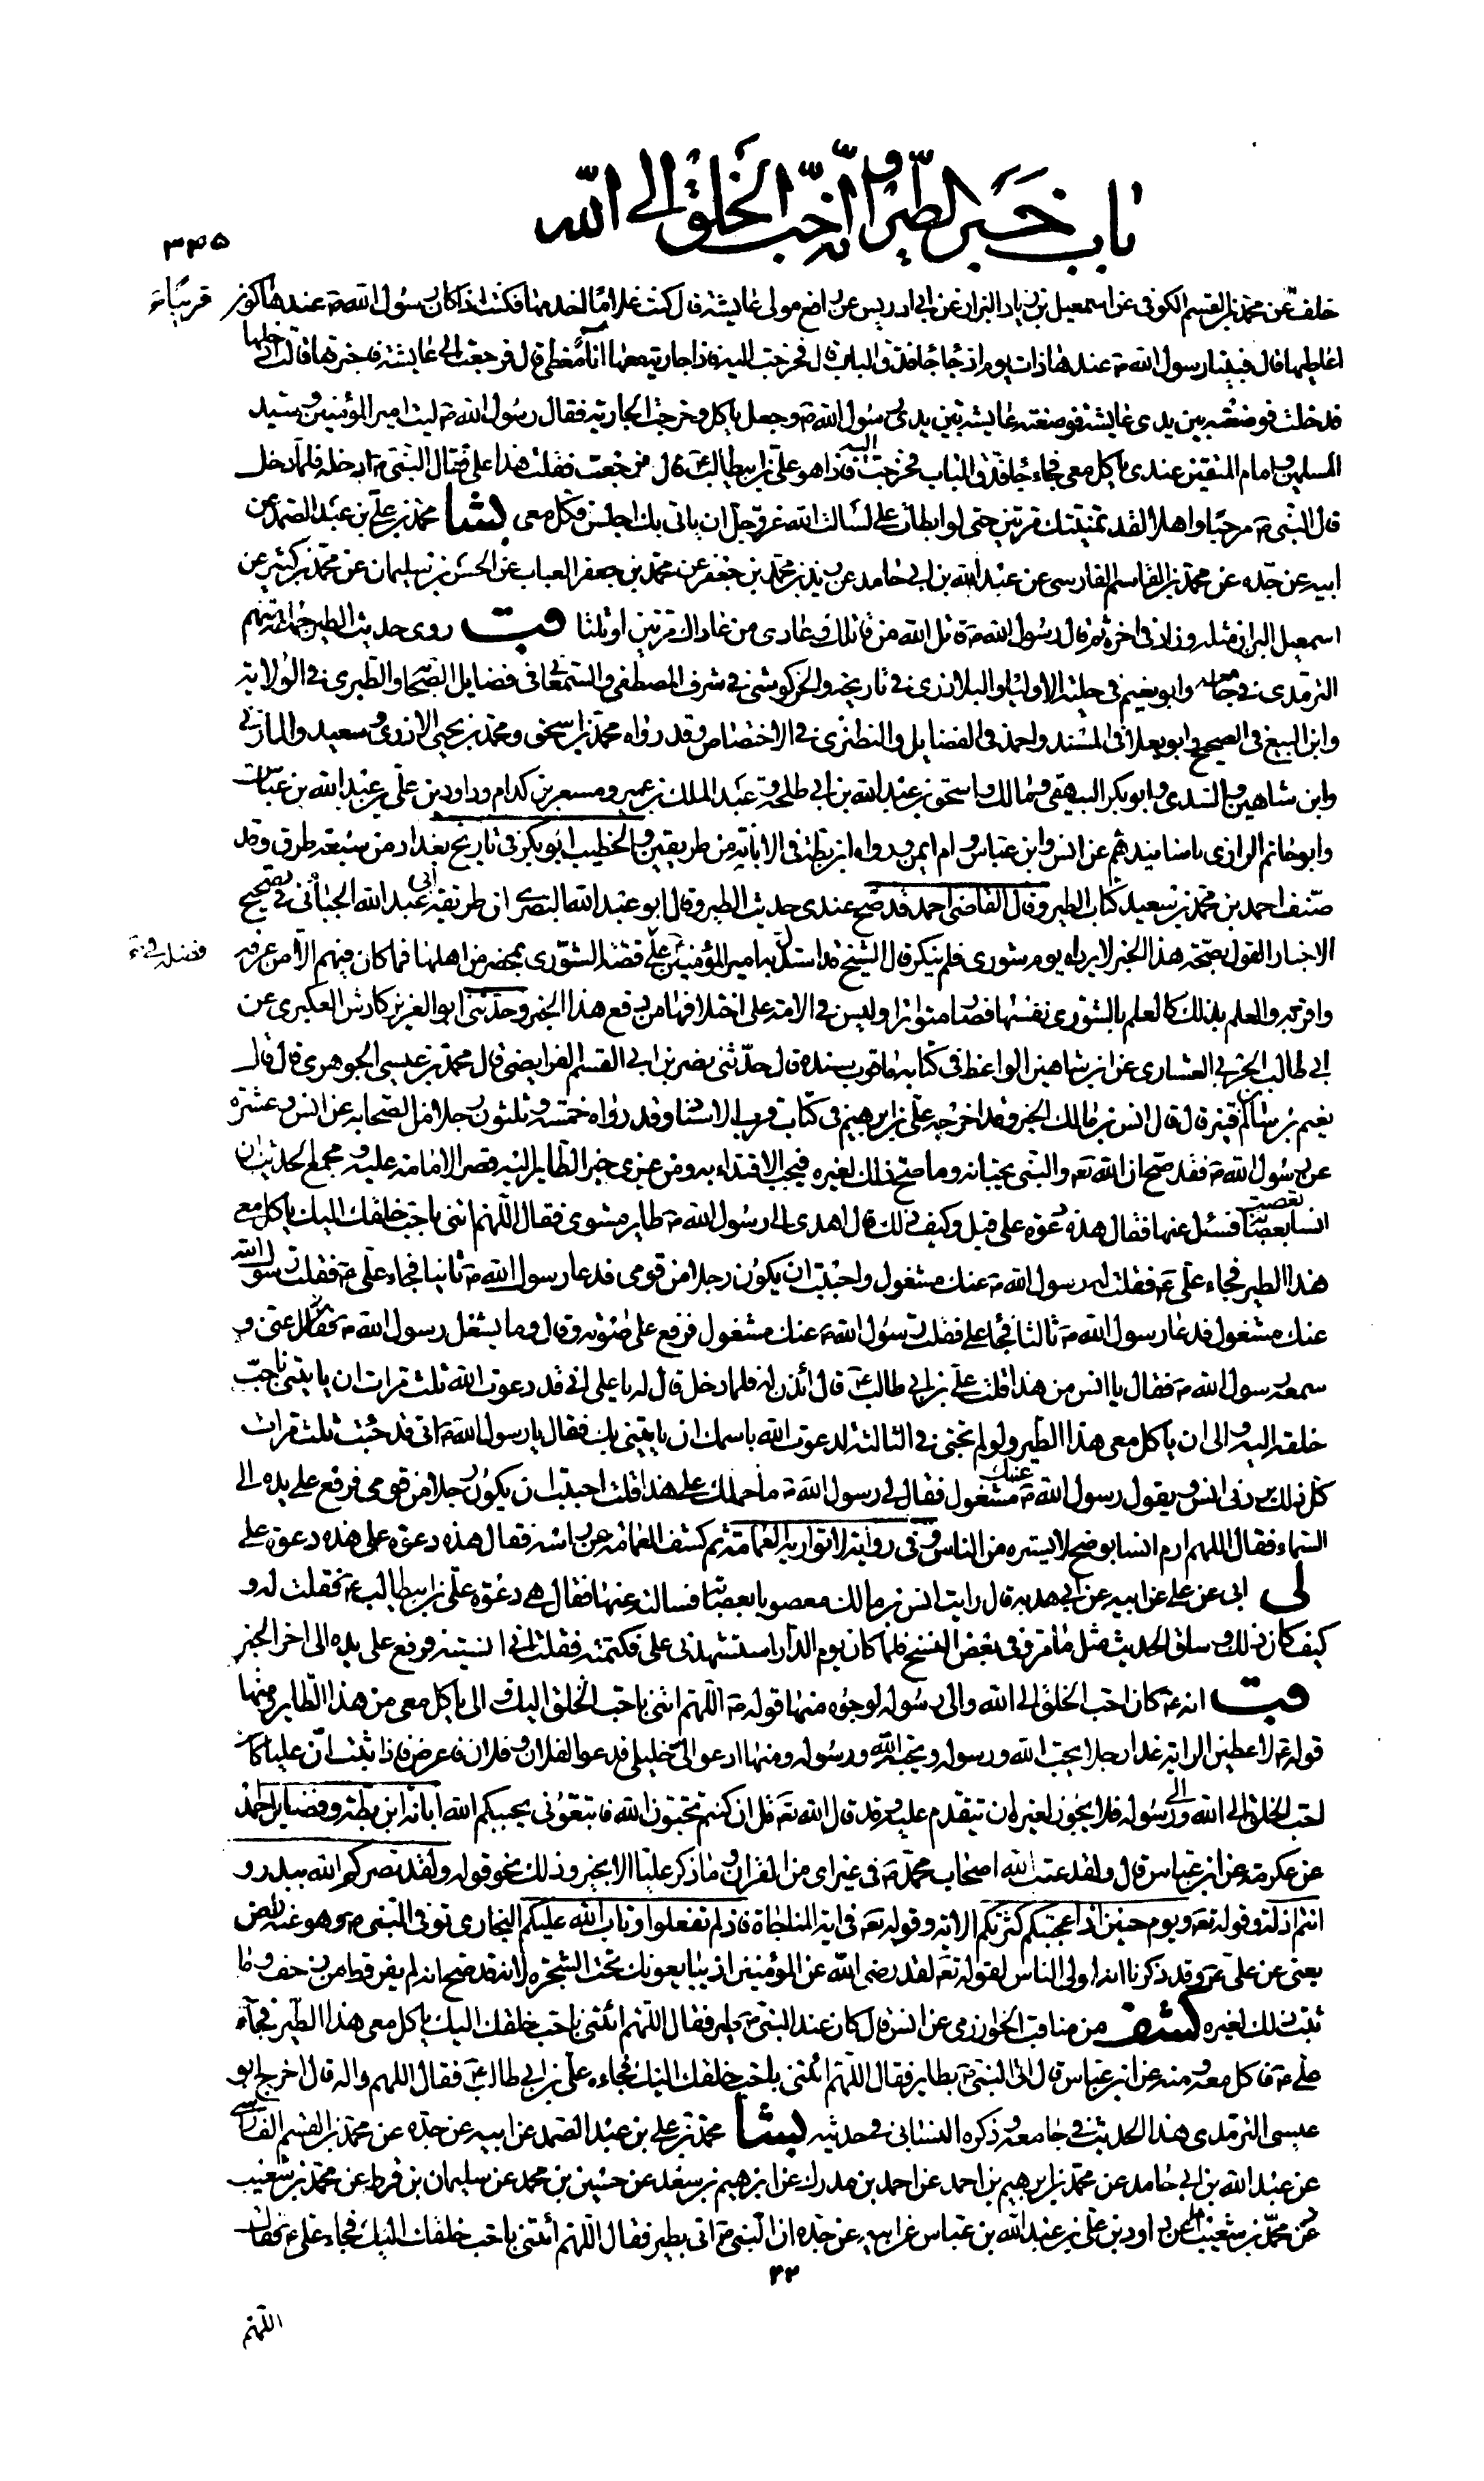 باب خبر الطير وانه احب الخلق الى الله
٣٤٥
خلف عن محمد بن القسم الكوفى عن اسمعيل بن زياد البزاز عن ابى ادريس عن رافع مولى عايشة قال كنت غلاما اخدمها فكنت اذا كان رسول الله ص عندها اكون قريبا ء
اعاطيها قال فبينا رسول الله ص عندها ذات يوم اذ جاء جاء فدق الباب قال فخرجت اليه فاذا جارية معها اناء مغطى قال فرجعت الى عايشة فاخبرتها قالت ادخلها
فدخلت فوضعته بين يدى عايشة فوضعته عايشة بين يدى رسول الله ص وجعل ياكل وخرجت الجارية فقال رسول الله ص ليت امير المؤمنين وسيد
المسلمين وامام المتقين عندى ياكل معى فجاء جاء فدق الباب فخرجت اليه فاذا هو على بن ابيطالب ع قال فرجعت فقلت هذا على فقال النبى ص ادخله فلما دخل
قال النبى ص مرحبا واهلا لقد تمنيتك مرتين حتى لو ابطات على لسالت الله عز وجل ان ياتى بك اجلس فكل معى بشا محمد بن على بن عبد الصمد عن
ابيه عن جده عن محمد بن القاسم الفارسى عن عبد الله بن ابى حامد عن محمد بن جعفر عن محمد بن جعفر العباب عن الحسن بن سليمان عن محمد بن كثير عن
اسمعيل البزاز مثله وزاد فى اخره ثم قال رسول الله ص قاتل الله من قاتلك وعادى من عاداك مرتين او ثلثا قب روى حديث الطير جماعة منهم
الترمذى فى جامعه وابو نعيم فى حلية الاوليا والبلاذرى فى تاريخه والخركوشى فى شرف المصطفى والسمعانى فى فضايل الصحابة والطبرى فى الولاية
وابن البيع فى الصحيح وابو يعلى فى المسند واحمد فى الفضايل والنطنزى فى الاختصاص وقد رواه محمد بن اسحق ومحمد بن يحيى الازدى وسعيد والمازنى
وابن شاهين والسدى وابو بكر البيهقى ومالك واسحق بن عبد الله بن ابى طلحة وعبد الملك بن عمير ومسعر بن كدام وداود بن على بن عبد الله بن عباس
وابو حاتم الرازى باسانيدهم عن انس وابن عباس وام ايمن ورواه ابن بطة فى الابانة من طريقين والخطيب ابو بكر فى تاريخ بغداد من سبعة طرق وقد
صنف احمد بن محمد بن سعيد كتاب الطير وقال القاضى احمد قد صح عندى حديث الطير وقال ابو عبد الله البصرى ان طريقة ابى عبد الله الجبائى فى تصحيح
الاخبار القول بصحة هذا الخبر لايراده يوم شورى فلم ينكر قال الشيخ قد استدل به امير المؤمنين على فضله فى قصة الشورى بمحضر من اهلها فما كان فيهم الا من عرفه
واقر به والعلم بذلك كالعلم بالشورى نفسها فصار متواترا وليس فى الامة على اختلافها من دفع هذا الخبر وحدثنى ابو العزيز كادش العكبرى عن
ابى طالب الحربى العشارى عن ابن شاهين الواعظ فى كتابه ما قرب سنده قال حدثنى نصر بن ابى القسم الفرايضى قال محمد بن عيسى الجوهرى قال قال
نعيم بن سالم بن قنبر قال قال انس بن مالك الخبر وقد اخرجه على بن ابرهيم فى كتاب قرب الاسناد وقد رواه خمسة وثلثون رجلا من الصحابة عن انس وعشرة
عن رسول الله ص فقد صح ان الله تع والنبى يحبانه وما صح ذلك لغيره فيجب الاقتداء به ومن عزى خبر الطاير اليه قصر الامامة عليه ومجمع الحديث ان
انسا تعصب بعصابة فسئل عنها فقال هذه دعوة على قيل وكيف ذلك قال اهدى الى رسول الله ص طاير مشوى فقال اللهم ائتنى باحب خلقك اليك ياكل معى
هذا الطير فجاء على ع فقلت له رسول الله ص عنك مشغول واحببت ان يكون رجلا من قومى فدعا رسول الله ص ثانيا فجاء على ع فقلت رسول الله
عنك مشغول فدعا رسول الله ص ثالثا فجاء على فقلت رسول الله ص عنك مشغول فرفع على صوته وقال وما يشغل رسول الله ص عنى و
سمعه رسول الله ص فقال يا انس من هذا قلت على بن ابى طالب ع قال ائذن له فلما دخل قال له يا على انى قد دعوت الله ثلث مرات ان ياتينى باحب
خلقه اليه والى ان ياكل معى هذا الطير ولو لم تجئنى فى الثالثة لدعوت الله باسمك ان ياتينى بك فقال يا رسول الله ص انى قد جئت ثلث مرات
كل ذلك يردنى انس ويقول رسول الله ص عنك مشغول فقال لى رسول الله ص ما حملك على هذا قلت احببت ان يكون رجلا من قومى فرفع على يده الى
السماء فقال اللهم ارم انسا بوضح لا يستره من الناس وفى رواية لا تواريه العمامة ثم كشف العمامة عن راسه فقال هذه دعوة على هذه دعوة على
لى ابى عن على عن ابيه عن ابى هدبه قال رايت انس بن مالك معصوبا بعصابة فسالته عنها فقال هى دعوة على بن ابيطالب ع فقلت له و
كيف كان ذلك وساق الحديث مثل ما مر وفى بعض النسخ فلما كان يوم الدار استشهدنى على فكتمته فقلت انى انسيته فرفع على يده الى اخر الخبر
قب انه ع كان احب الخلق الى الله والى رسوله لوجوه منها قوله ص اللهم ائتنى باحب الخلق اليك والى ياكل معى من هذا الطاير ومنها
قوله ع لاعطين الراية غدا رجلا يحب الله ورسوله ويحبه الله ورسوله ومنها ادعوا الى خليلى فدعوا لفلان وفلان فاعرض فاذا ثبت ان عليا كان
احب الخلق الى الله والى رسوله فلا يجوز لغيره ان يتقدم عليه وقد قال الله تع قل ان كنتم تحبون الله فاتبعونى يحببكم الله ابانة ابن بطة وفضايل احمد
عن عكرمة عن ابن عباس قال ولقد عتب الله اصحاب محمد ص فى غير اى من القران وما ذكر عليا الا بخير وذلك نحو قوله ولقد نصركم الله ببدر و
انتم اذلة وقوله تع ويوم حنين اذ اعجبتكم كثرتكم الاية وقوله تع فى اية المناجاة فاذ لم تفعلوا وتاب الله عليكم البخارى توفى النبى ص وهو عنه راض
يعنى عن على ع وقد ذكرنا انه اولى الناس لقوله تع لقد رضى الله عن المؤمنين اذ يبايعونك تحت الشجرة لانه قد صح انه لم يفر قط من زحف وما
ثبت ذلك لغيره كشف من مناقب الخوارزمى عن انس قال كان عند النبى ص طير فقال اللهم ائتنى باحب خلقك اليك ياكل معى هذا الطير فجاء
على ع فاكل معه ومنه عن ابن عباس قال اتى النبى ص بطاير فقال اللهم ائتنى باحب خلقك اليك فجاءه على بن ابى طالب ع فقال اللهم واله قال اخرج ابو
عيسى الترمذى هذا الحديث فى جامعه وذكره النسائى فى حديثه بشا محمد بن على بن عبد الصمد عن ابيه عن جده عن محمد بن القسم الفارسى
عن عبد الله بن ابى حامد عن محمد بن ابرهيم بن احمد عن احمد بن مدرك عن ابرهيم بن سعد عن حسين بن محمد عن سليمان بن قرط عن محمد بن شعيب
عن محمد بن شعيب عن داود بن على بن عبد الله بن عباس عن ابيه عن جده ان النبى ص اتى بطير فقال اللهم ائتنى باحب خلقك اليك فجاء على ع فقال
٢٢
اللهم